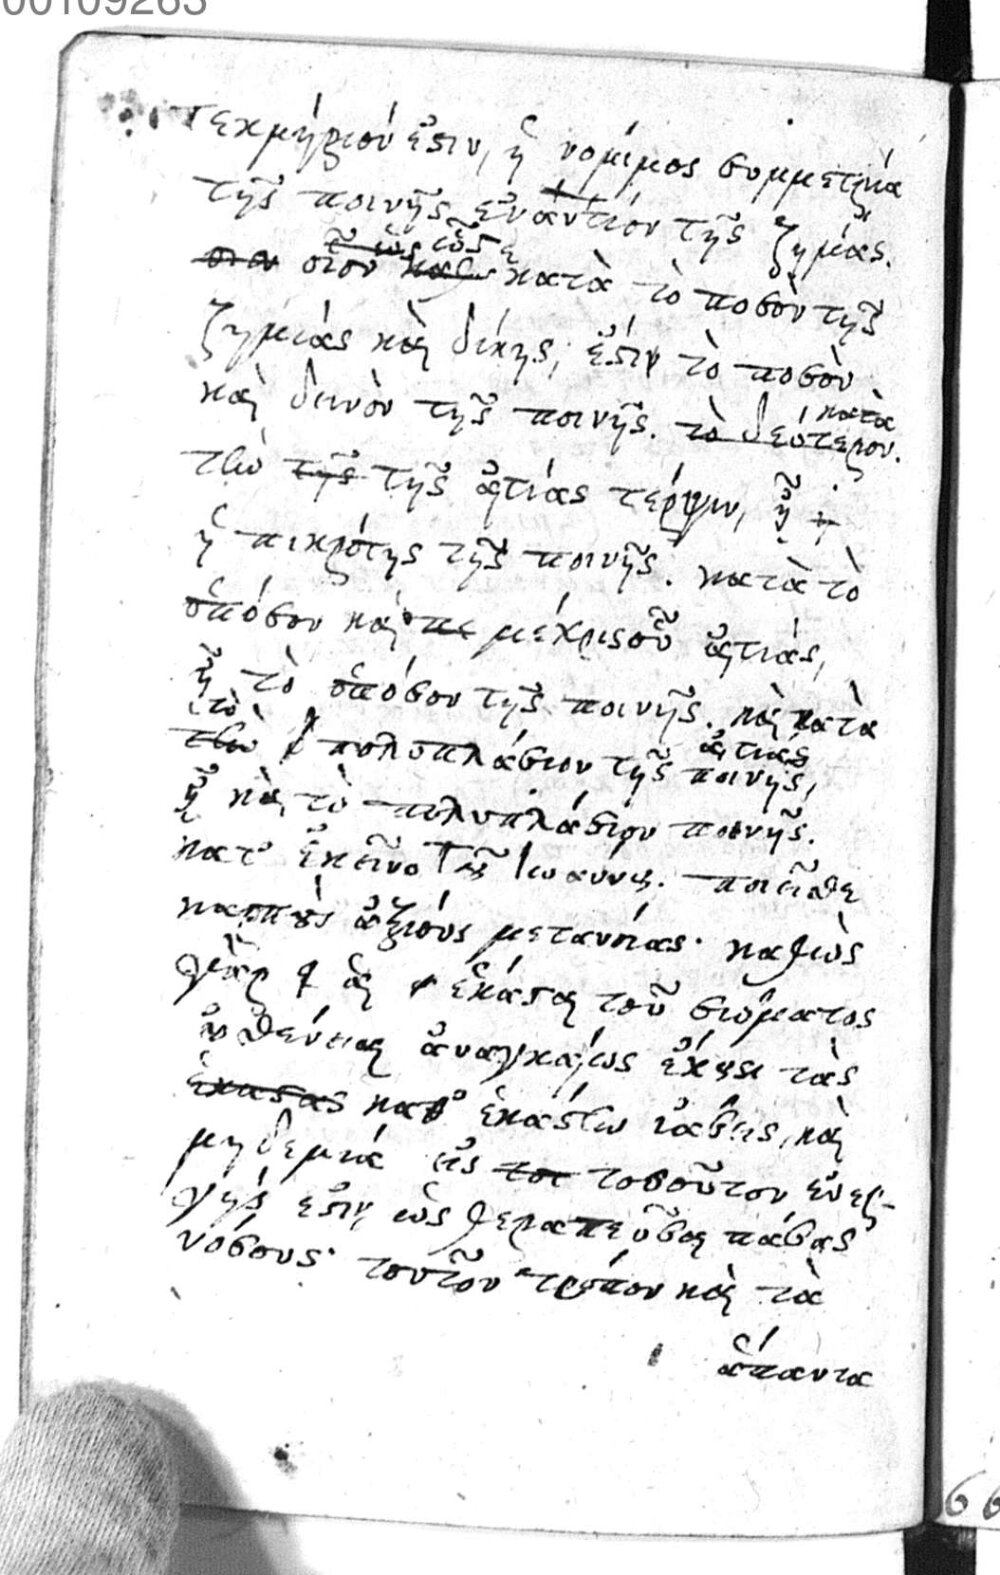 00109263
τεκμήριόν ἐστιν, ἡ νομίμος συμμετρία
τῆς ποινῆς ἐναντίον τῆς ζημίας.
οἷον κατὰ τὸ ποσὸν τῆς
ζημίας καὶ δίκης, ἔστιν τὸ ποσὸν
καὶ δεινὸν τῆς ποινῆς. τὸ δεύτερον. κατὰ
τὴν τῆς τῆς αἰτίας τέρψιν, ᾖ
ἡ πικρότης τῆς ποινῆς. κατὰ τὸ
ὁπόσον καὶ πε μέχρις οὗ αἰτίας,
ᾖ τὸ ὁπόσον τῆς ποινῆς. καὶ κατὰ
τὸ
τὴν πολυπλάσιον τῆς ποινῆς, αἰτίας
ᾖ καὶ τὸ πολυπλάσιον ποινῆς.
κατ' ἐκεῖνο τοῦ Ἰωάννου. ποιεῖσθε
καρποὺς ἀξίους μετανοίας· καθὼς
γὰρ αἱ ἕκασται τοῦ σώματος
ἀσθένειαι ἀναγκαίως ἔχουσι τὰς
ἑκάστας καθ' ἑκάστην ἰάσεις, καὶ
μηδεμία εἰς το τοσοῦτον ἐνερ-
γής ἐστιν ὡς θεραπεῦσαι πάσας
νόσους· τοῦτον τρόπον καὶ τὰ
ἅπαντα
66